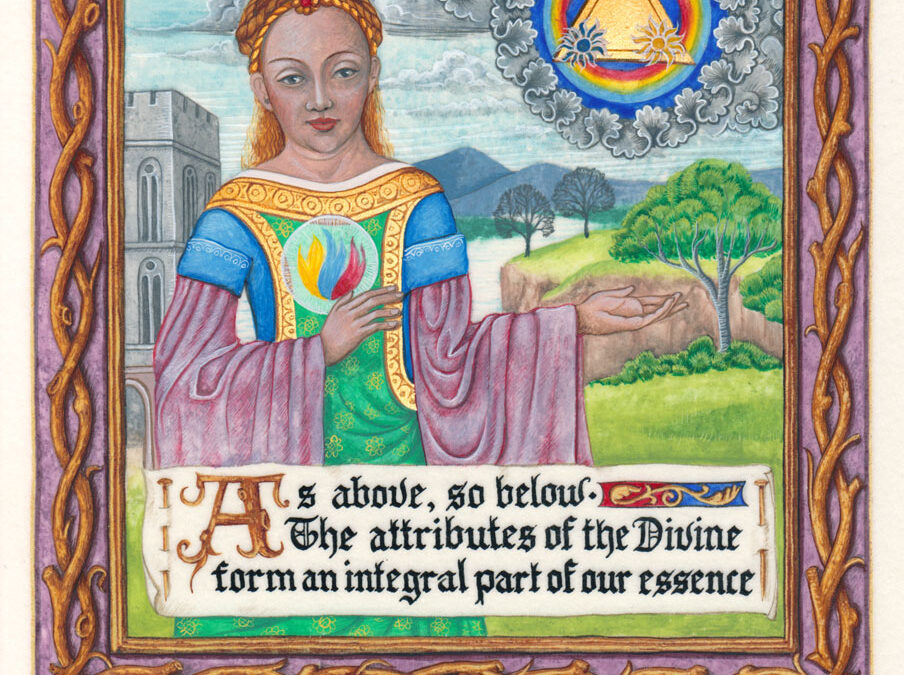 As above, so below.
The attributes of the Divine
form an integral part of our essence